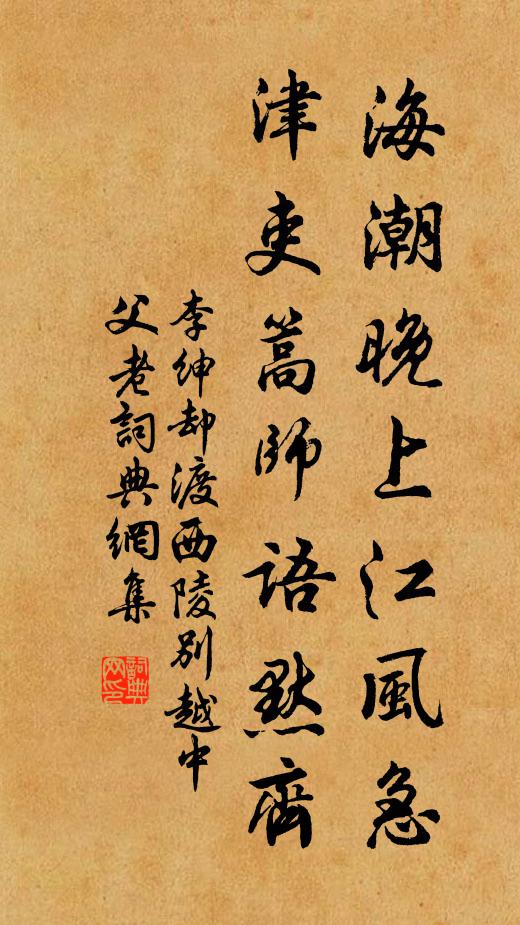 海潮晚上江風急
津吏篙師語默齊
李紳却渡西陵別越中
父老詞典網集
詞典
网印